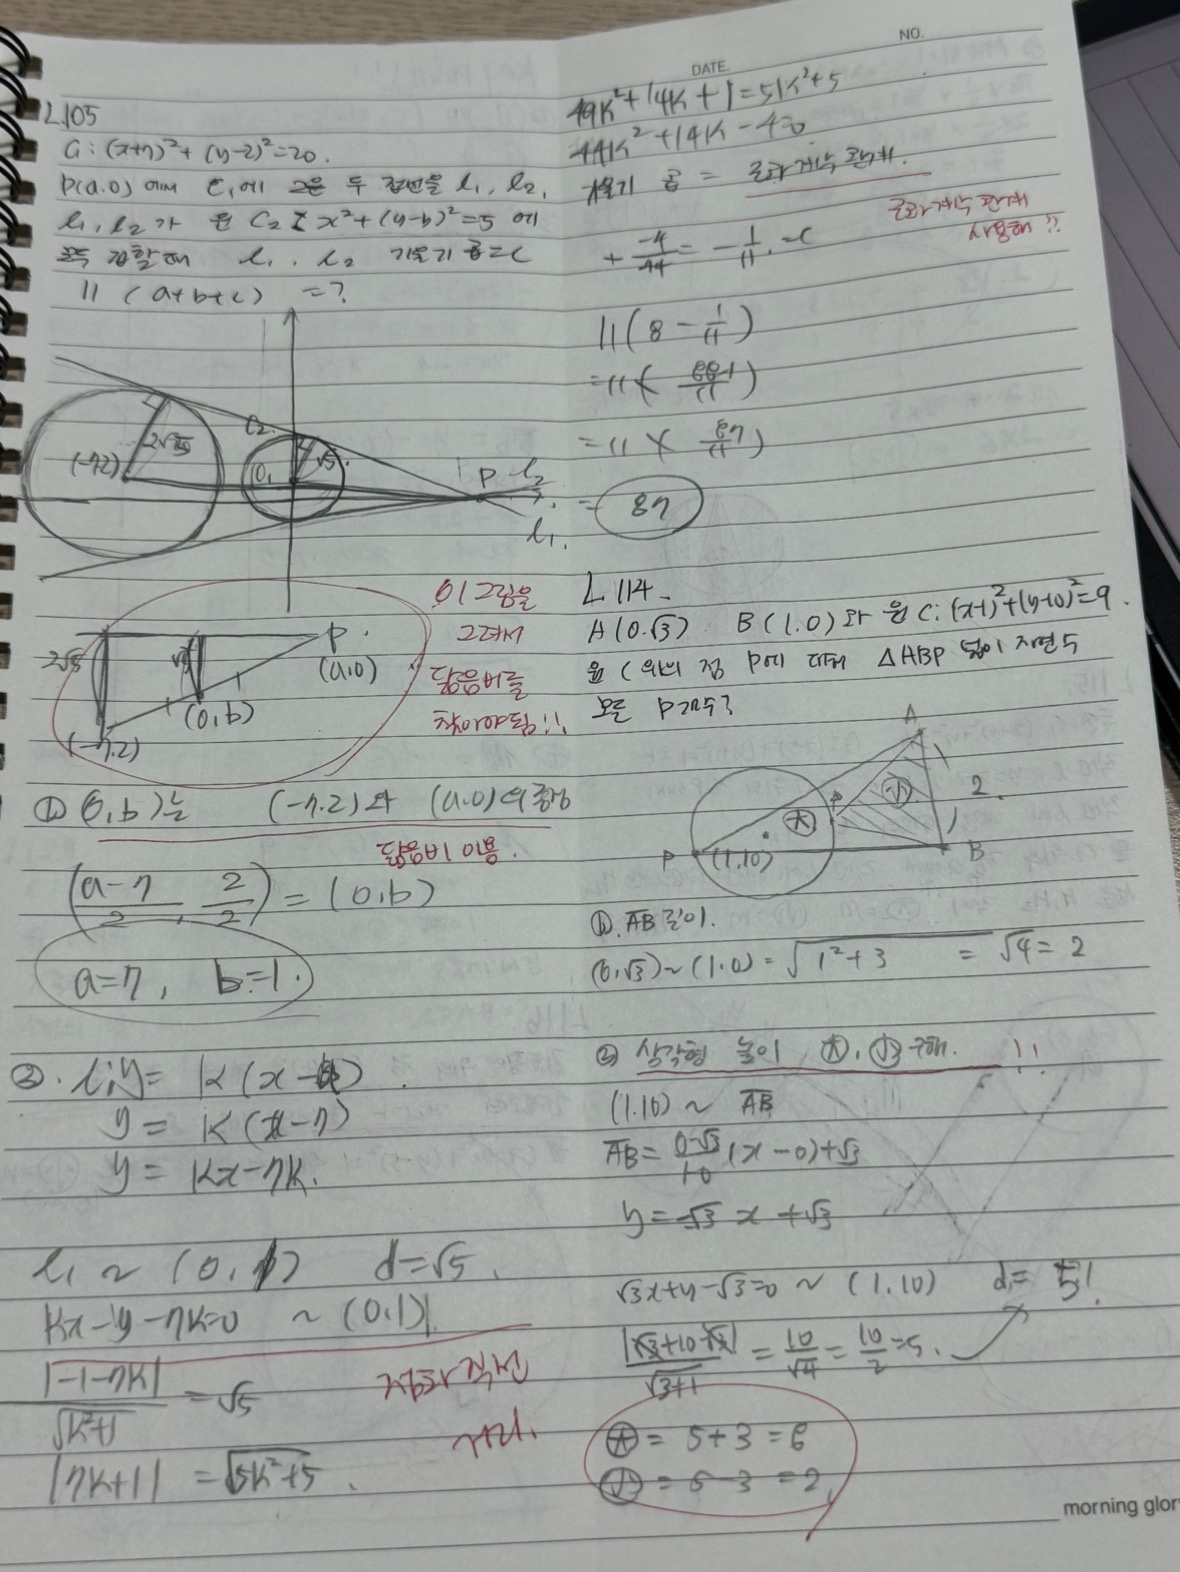 NO.
DATE.
L105
C₁: (x+7)²+(y-2)²=20.
P(a.0) 에서 C₁에 그은 두 접선을 l₁, l₂,
l₁, l₂ 가 원 C₂ x²+(y-b)²=5 에
모두 접할때 l₁, l₂ 기울기 곱=c
11 (a+b+c) =?
C₂
2√5
√5
(-7.2)
P
l₂
l₁.
이 그림을
그려서
닮음비를
찾아야됨!!
2√5
√5
P.
(a.0)
(0,b)
(-7.2)
① (0,b)는 (-7.2)와 (a.0)의 중점
닮음비 이용.
(a-7/2, 2/2) = (0,b)
a=7, b=1.
②. l: y= k(x-a)
y = k(x-7)
y = kx-7k.
l₁ ~ (0,1) d=√5.
kx-y-7k=0 ~ (0.1)
|-1-7k|/√k²+1 = √5
점과 직선
거리.
|7k+1| = √5k²+5.
49k²+14k+1=5k²+5
44k²+14k-4=0
기울기 곱 = 근과 계수 관계.
근과 계수 관계
사용해??
+ -4/44 = -1/11 = c
11(8 - 1/11)
=11 × (88-1/11)
=11 × (87/11)
= 87
L114.
A(0.√3) B(1.0)와 원 C: (x-1)²+(y-10)²=9.
원 C 위의 점 P에 대해 △ABP 넓이 자연수
모든 P개수?
A
2
P
B
P
(1.10)
①. AB 길이.
(0,√3)~(1.0) = √1²+3 = √4 = 2
② 삼각형 높이 대, 소 구해. !!
(1.10) ~ AB
AB= 0-√3/1-0 (x-0)+√3
y=-√3 x +√3
√3x+y-√3=0 ~ (1.10) d= 5!
|√3+10-√3|/√3+1 = 10/√4 = 10/2 =5.
대 = 5+3 = 8
소 = 5-3 = 2
morning glor